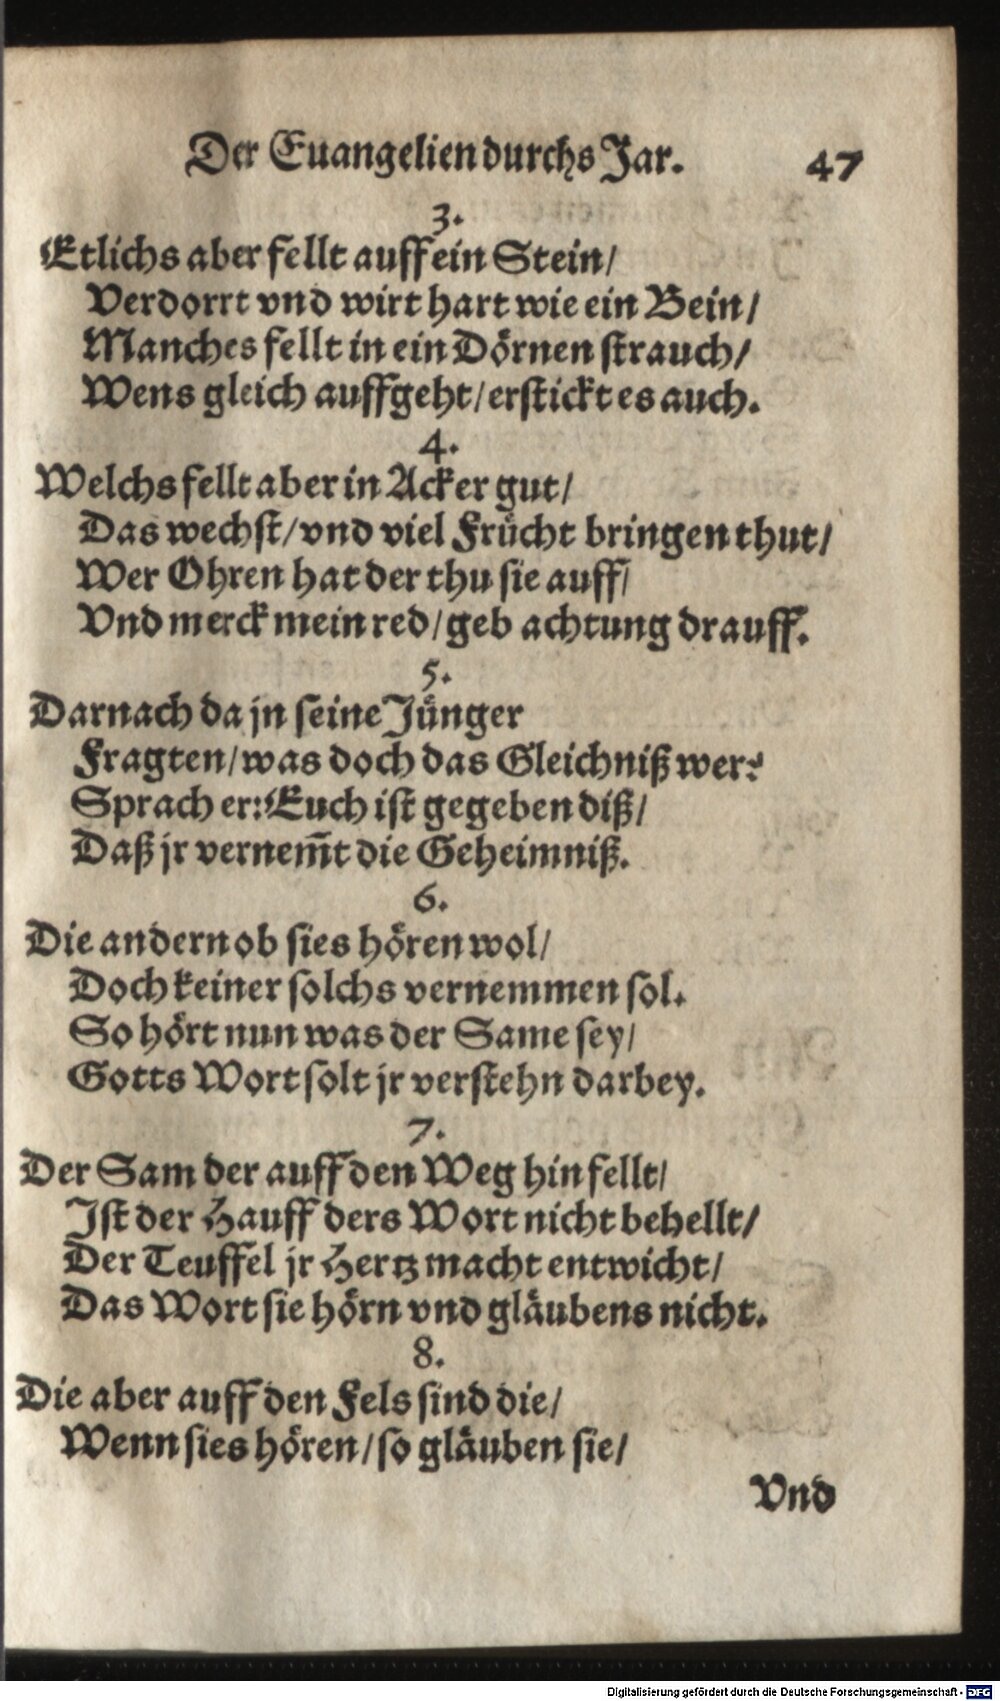 Der Euangelien durchs Jar. 47
3.
Etlichs aber fellt auff ein Stein/
Verdorrt vnd wirt hart wie ein Bein/
Manches fellt in ein Dörnen strauch/
Wens gleich auffgeht/ erstickt es auch.
4.
Welchs fellt aber in Acker gut/
Das wechst/ vnd viel Frücht bringen thut/
Wer Ohren hat der thu sie auff/
Vnd merck mein red/ geb achtung drauff.
5.
Darnach da jn seine Jünger
Fragten/ was doch das Gleichniß wer?
Sprach er: Euch ist gegeben diß/
Daß jr vernem̅t die Geheimniß.
6.
Die andern ob sies hören wol/
Doch keiner solchs vernemmen sol.
So hört nun was der Same sey/
Gotts Wort solt jr verstehn darbey.
7.
Der Sam der auff den Weg hin fellt/
Ist der Hauff ders Wort nicht behellt/
Der Teuffel jr Hertz macht entwicht/
Das Wort sie hörn vnd gläubens nicht.
8.
Die aber auff den Fels sind die/
Wenn sies hören/ so gläuben sie/
Vnd
Digitalisierung gefördert durch die Deutsche Forschungsgemeinschaft - DFG